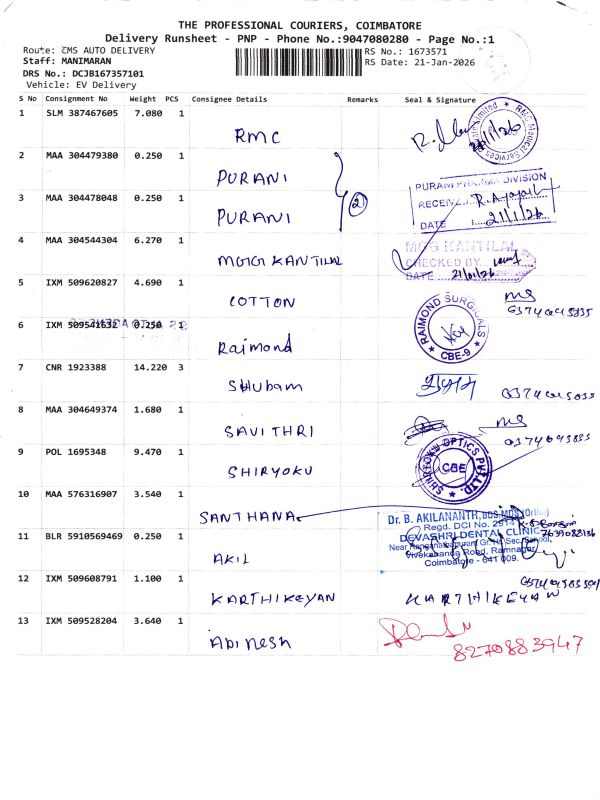 THE PROFESSIONAL COURIERS, COIMBATORE
Delivery Runsheet - PNP - Phone No.:9047080280 - Page No.:1
Route: CMS AUTO DELIVERY
RS No.: 1673571
Staff: MANIMARAN
RS Date: 21-Jan-2026
DRS No.: DCJB167357101
Vehicle: EV Delivery
S No Consignment No Weight PCS Consignee Details Remarks Seal & Signature
1 SLM 387467605 7.080 1
RMC
RMC Medical Services
2 MAA 304479380 0.250 1
PURANI
PURANI PHARMA DIVISION
3 MAA 304478048 0.250 1
PURANI
2
RECEIVED
DATE 21/1/26
4 MAA 304544304 6.270 1
MGG KANTILAL
MGG KANTILAL
CHECKED BY
DATE 21/01/26
5 IXM 509620827 4.690 1
COTTON
6 IXM 509541632 0.250 1
Raimond
RAIMOND SURGICALS
CBE-9
7 CNR 1923388 14.220 3
Shubam
8 MAA 304649374 1.680 1
SAVITHRI
9 POL 1695348 9.470 1
SHIRYOKU
SHIRYOKU OPTICS PVT LTD.
CBE
10 MAA 576316907 3.540 1
SANTHANA
Dr. B. AKILANANTH, BDS, MDS (Ortho)
Regd. DCI No. 2914
11 BLR 5910569469 0.250 1
AKIL
DEVASHRI DENTAL CLINIC
7639088136
Vivekananda Road, Ramnagar,
Coimbatore - 641 009.
12 IXM 509608791 1.100 1
KARTHIKEYAN
KARTHIKEYAN
13 IXM 509528204 3.640 1
Abinesh
8270883947